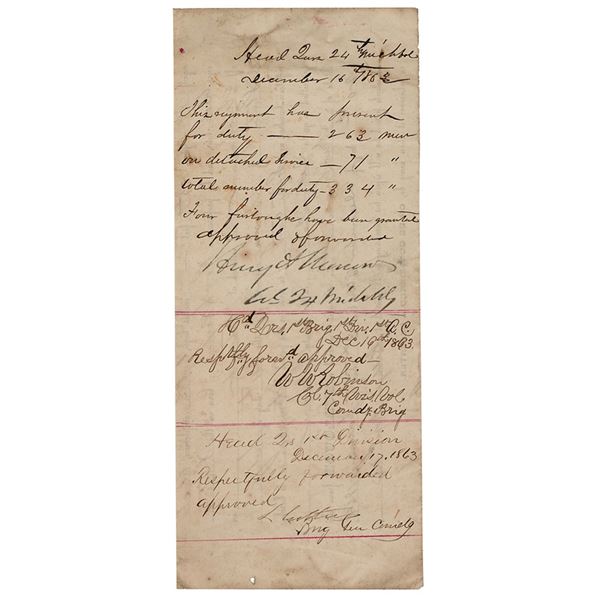 Head Qurs 24th Mich Vol
December 16th 1863
This regiment has present
for duty — 263 men
on detached service — 71 "
total number for duty - 334 "
Four furloughs have been granted
approved & forwarded
Henry A Morrow
Col 24 Mich Vol
Hd Qrs. 1st Brig. 1st Div. 1st A.C.
Dec 16th 1863.
Respetfly forwd approved —
W W Robinson
Col 7th Wis Vol
Comdg. Brig
Head Qrs 1st Division
December 17, 1863
Respectfully forwarded
approved
L Cutler
Brig Gen Comdg